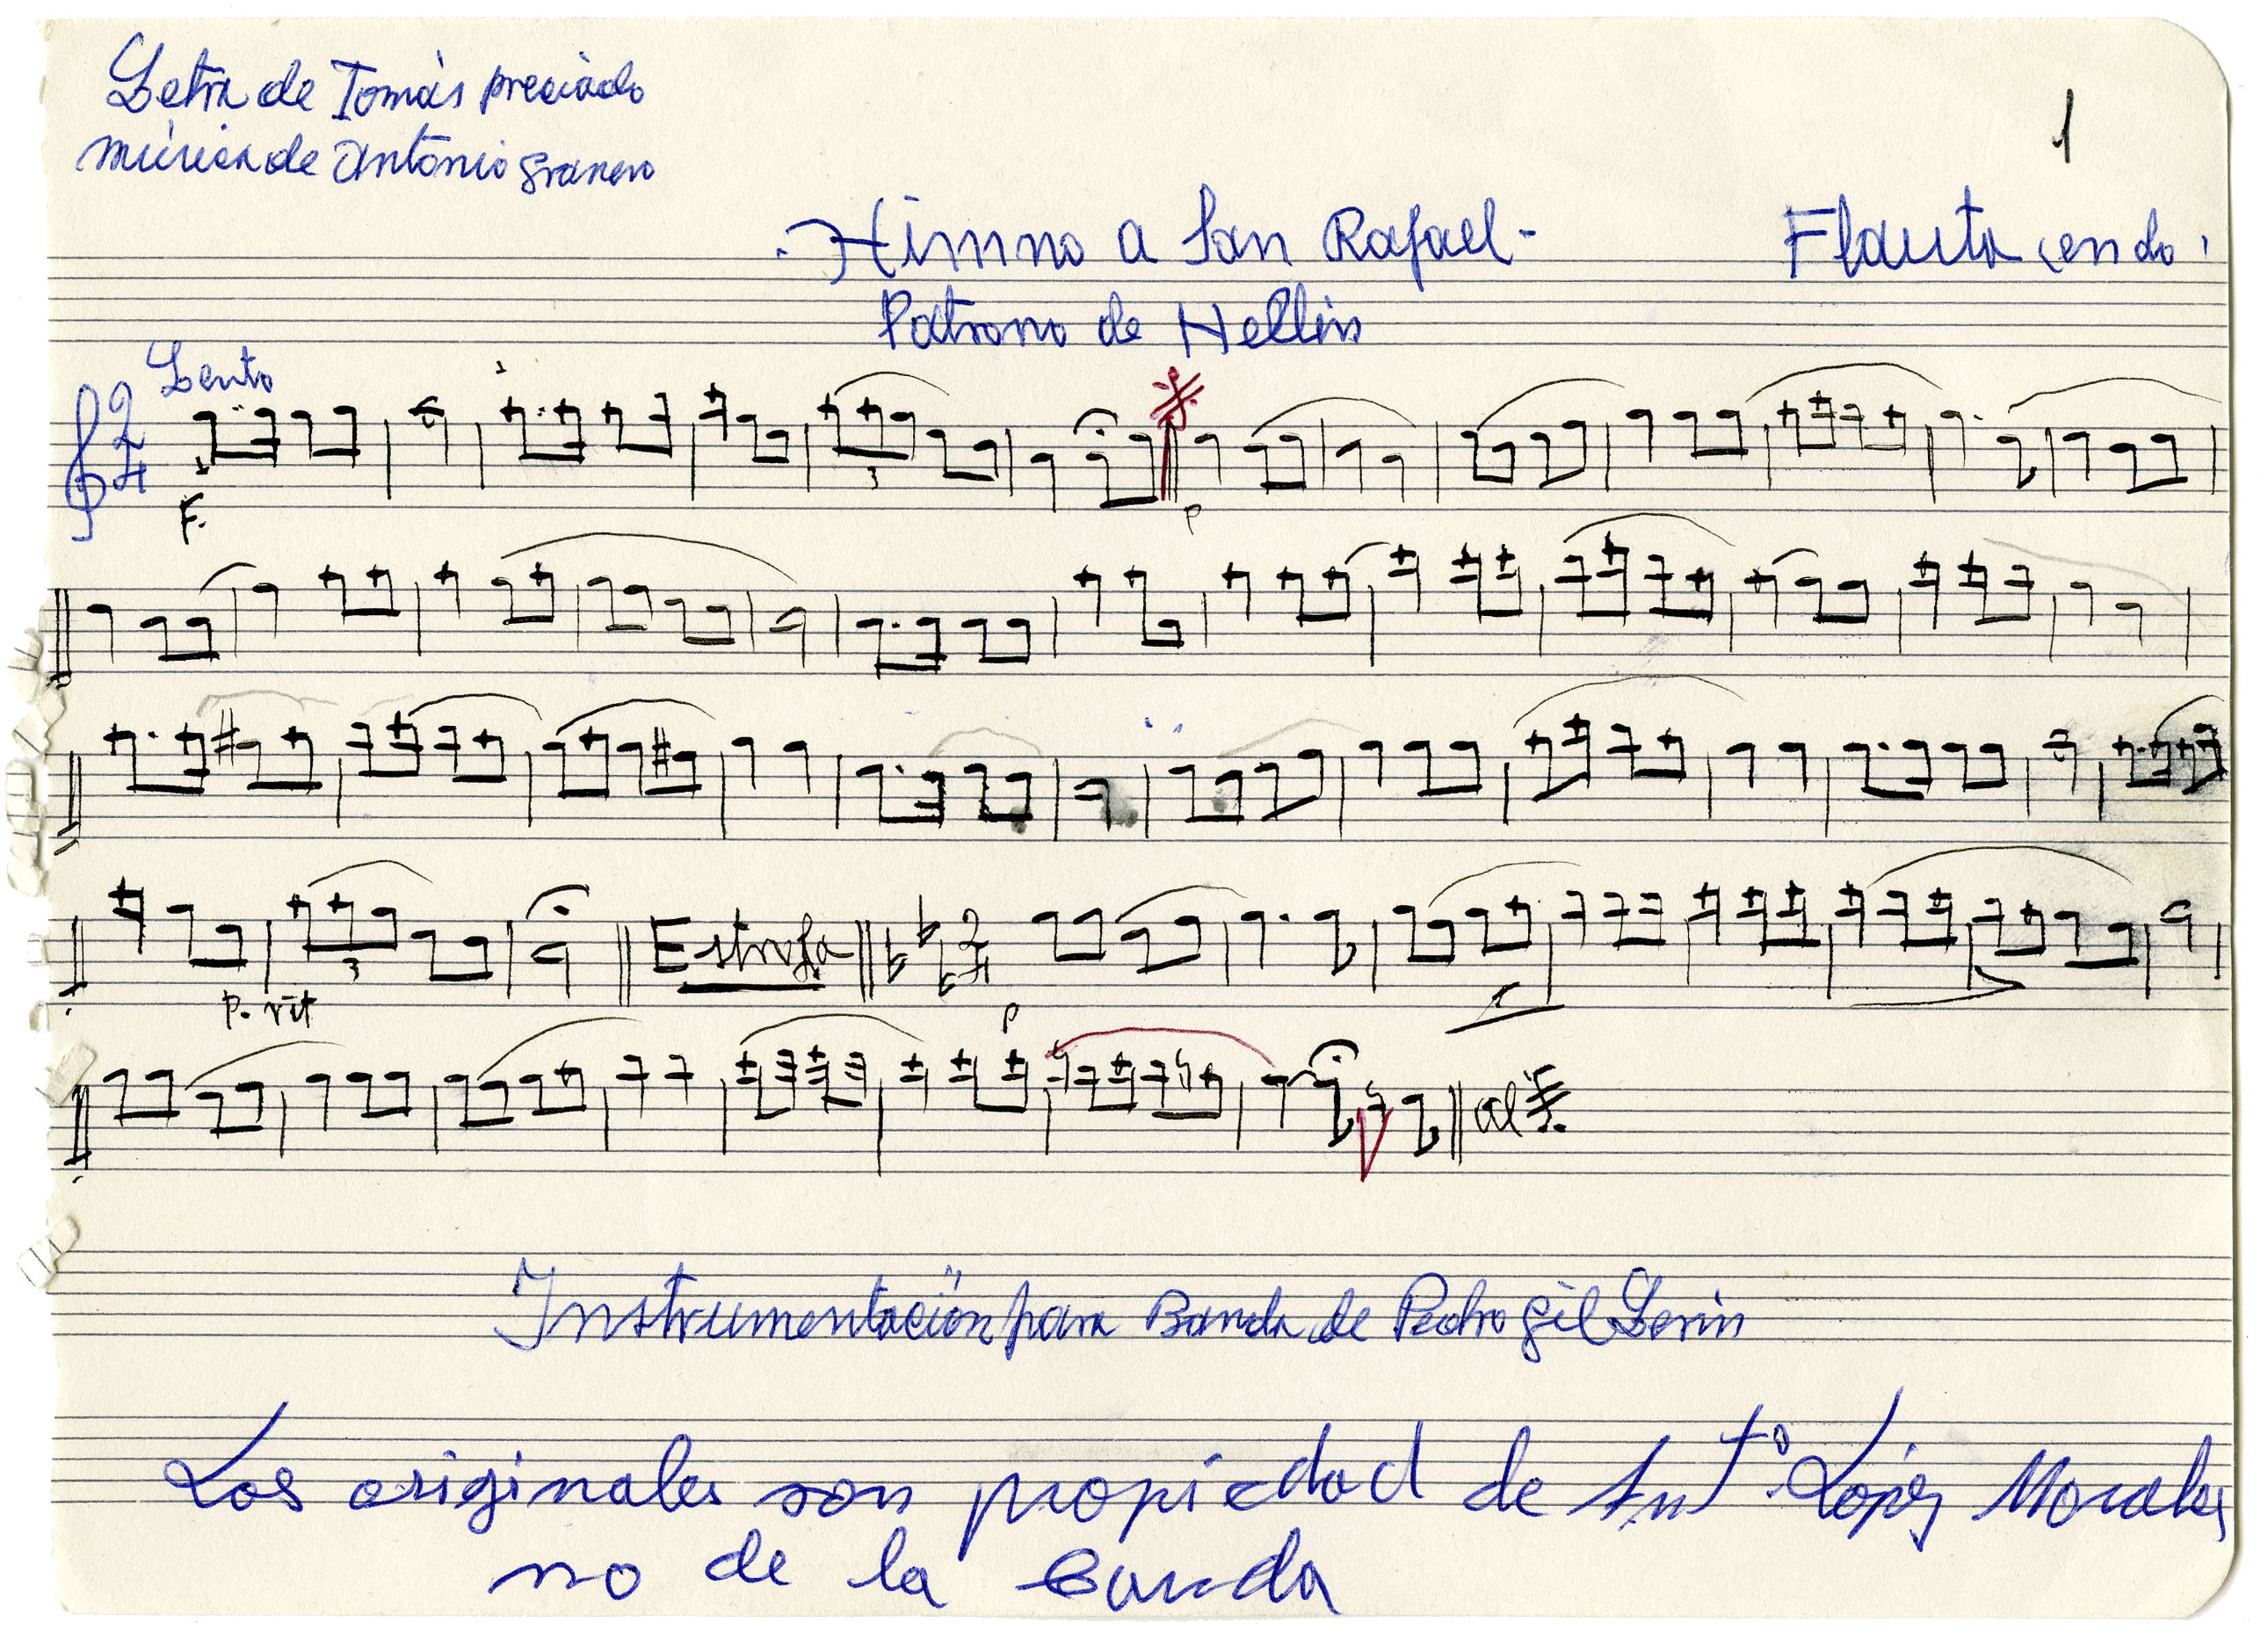 Letra de Tomás preciado
música de Antonio Granero
1
- Himno a San Rafael -
Flauta en do
Patrono de Hellín
Lento
2 4
F.
3
p
3
p. rit
Estrofa
2 4
p
al
Instrumentación para Banda de Pedro Gil Lerín
Los originales son propiedad de Antº López Morales
no de la Banda